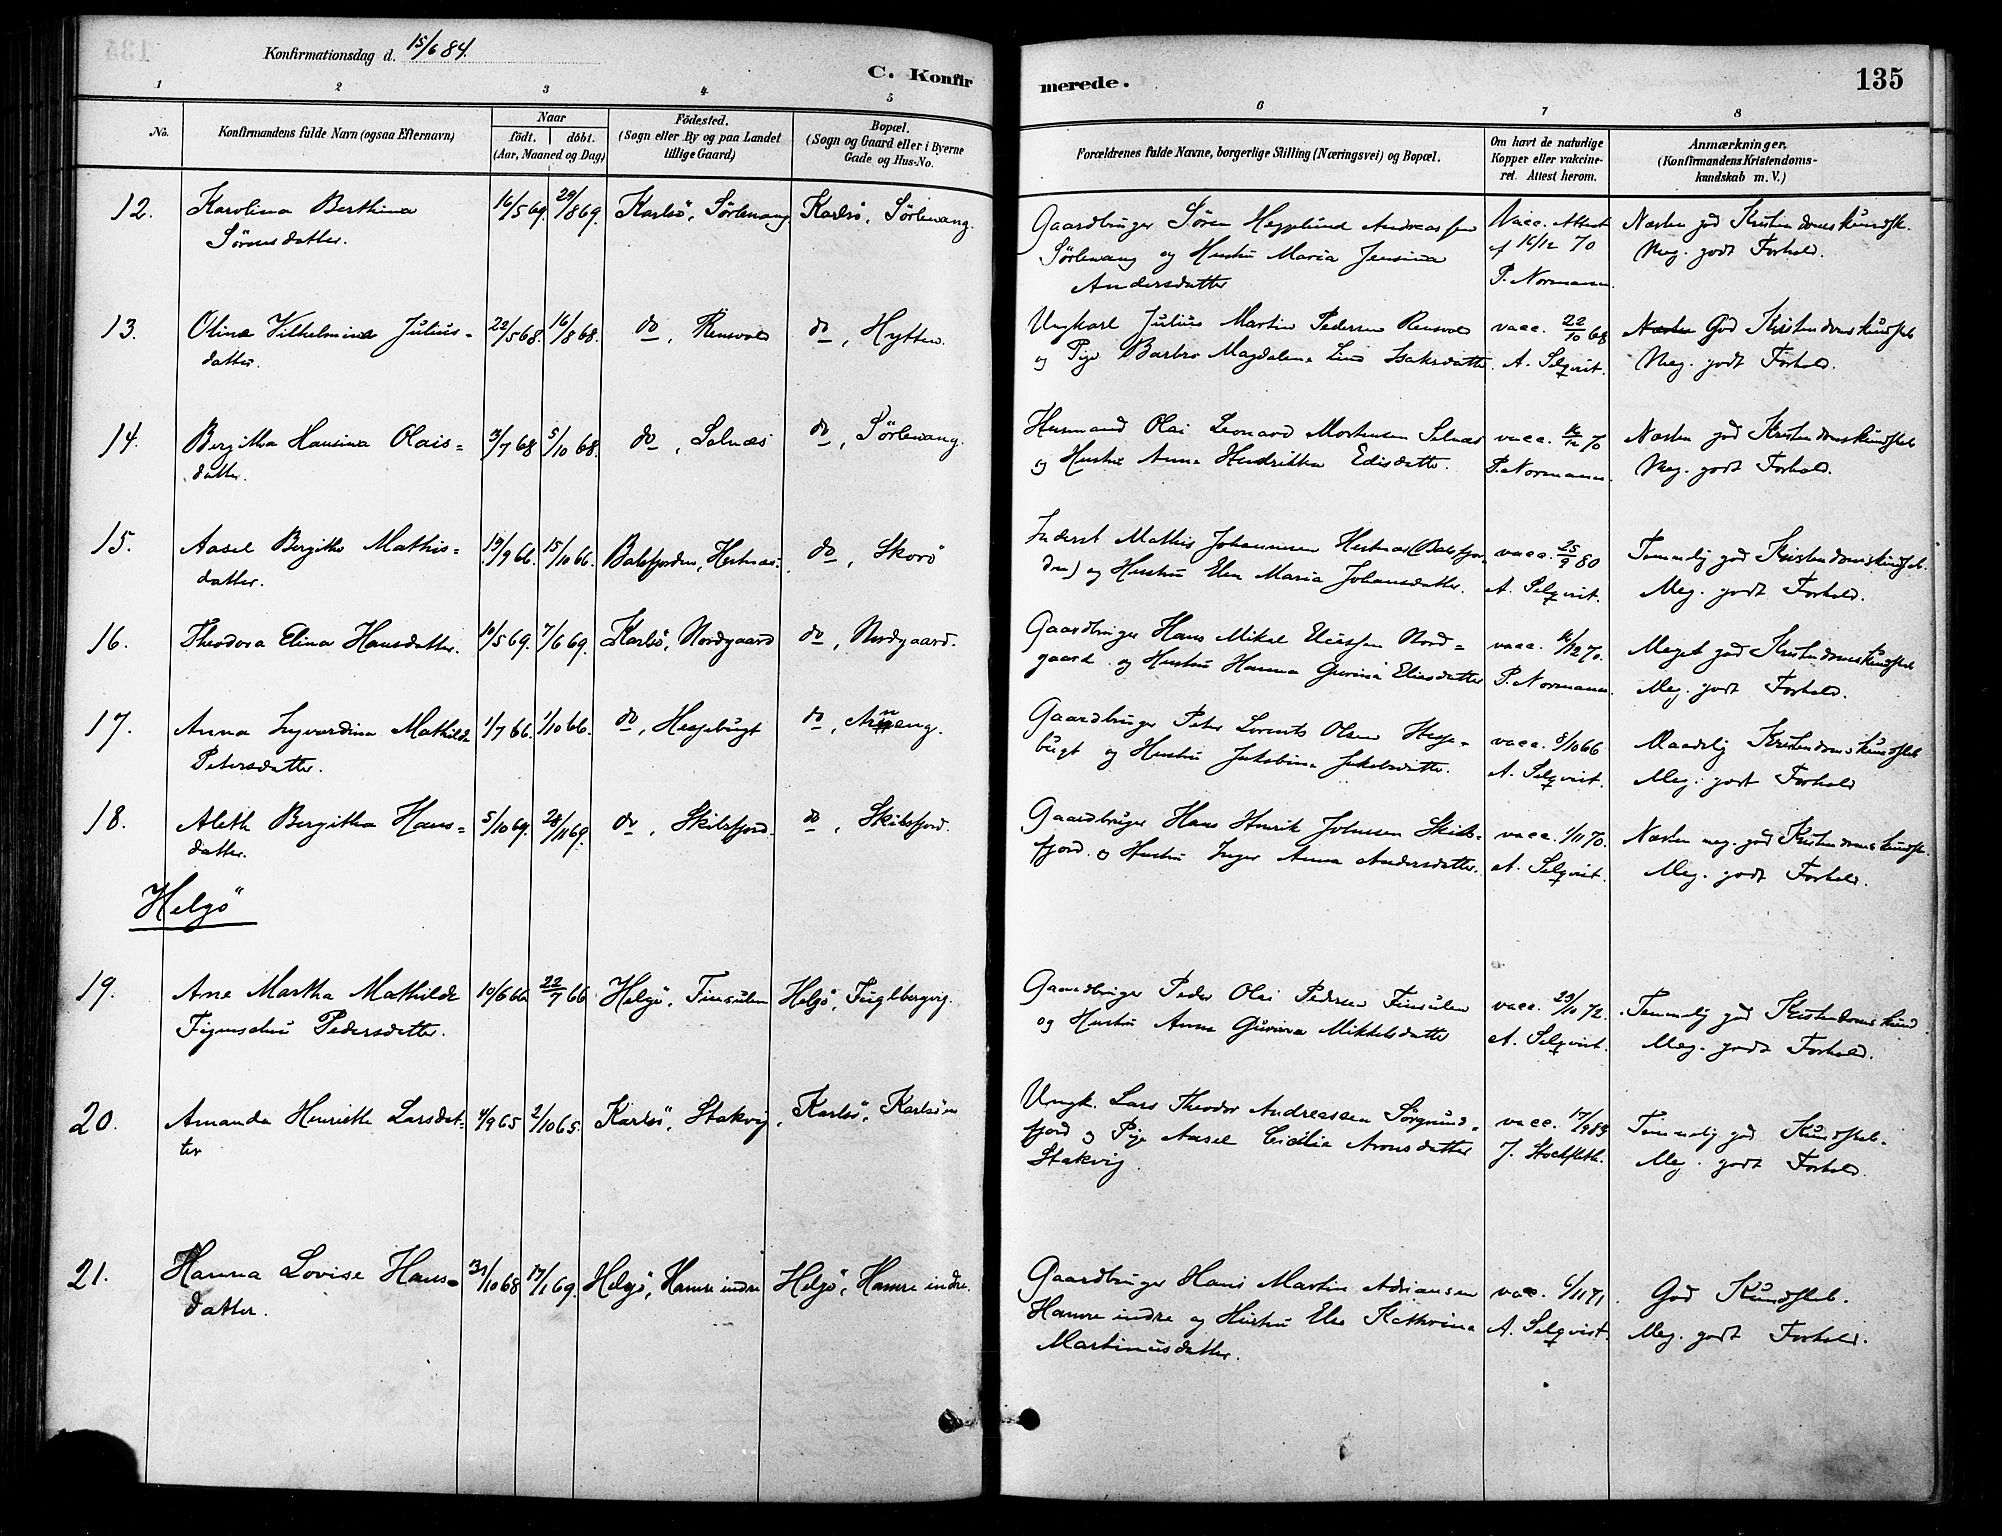 Konfirmationsdag d. 15/6 84.
C. Konfir merede. 135
1 2 3 4 5 6 7 8
No. Konfirmandens fulde Navn (ogsaa Efternavn) Naar født. døbt. (Aar, Maaned og Dag) Födested. (Sogn eller By og paa Landet tillige Gaard) Bopæl. (Sogn og Gaard eller i Byerne Gade og Hus-No. Forældrenes fulde Navne, borgerlige Stilling (Næringsvei) og Bopæl. Om havt de naturlige Kopper eller vakcineret. Attest herom. Anmærkninger. (Konfirmandens Kristendomskundskab m. V.)
12. Karolina Berthina 16/5 69. 29/8 69. Karlsö, Sörlenang. Karlsö, Sörlenang. Gaardbruger Sören Andreassen Vacc. Attest Næsten god Kristendomskundsk.
Sörensdatter. Sörlenang og Hustru Maria Jensina af 16/12 70 Meg. godt Forhold.
Andersdatter P. Normann
13. Olina Vilhelmina Julius- 22/5 68. 16/8 68. do, Rensvold do, Hytten. Ungkarl Julius Martin Pedersen Rensvold vacc. 22/10 68 God Kristendomskundskab
datter. og Pige Barbro Magdalena Lind Isaksdatter. A. Selqvist. Meg. godt Forhold.
14. Bergitha Hansina Olais- 3/7 68 5/10 68. do, Solnæs do, Sörlenang. Husmand Olai Leonard Mortensen Solnæs vacc. 16/12 70 Næsten god Kristendomskundskab
datter. og Hustru Anna Hendrikka Edisdatter. P. Normann. Meg. godt Forhold.
15. Aasel Bergitha Mathis- 19/9 66. 15/10 66. Balsfjorden, Hestnæs. do, Skorö Inderst Mathis Johannesen Hestnæs (Balsfjor- vacc. 25/9 80 Temmelig god Kristendomskundskab.
datter. den) og Hustru Elen Maria Johansdatter. A. Selqvist. Meg. godt Forhold.
16. Theodora Elina Hansdatter. 10/5 69. 7/6 69. Karlsö, Nordgaard do, Nordgaard. Gaardbruger Hans Mikal Nord- vacc. 16/12 70. Meget god Kristendomskundskab
gaard og Hustru Hanna Gurina Eliasdatter P. Normann. Meg. godt Forhold.
17. Anna Ingvardina Mathilde 1/7 66. 1/10 66. do, Hessebugt do, Gaardbruger Peter Lorents Olsen Hesse- vacc. 8/10 66 Maadelig Kristendomskundskab
Petersdatter. bugt og Hustru Jakobina Jakobsdatter. A. Selqvist. Meg. godt Forhold
18. Aleth Bergitha Hans- 5/10 69. 28/11 69. do, Skibsfjord. do, Skibsfjord. Gaardbruger Hans Henrik Johnsen Skibs- vacc. 1/11 70. Næsten meg. god Kristendomskundsk.
datter. fjord. og Hustru Inger Anna Andersdatter. A. Selqvist. Meg. godt Forhold.
Helgö
19. Ane Martha Mathilde 10/6 66 22/7 66 Helgö, Finsulen Helgö, Fuglbergvig. Gaardbruger Peder Olai Pedersen Finsulen vacc. 29/10 72. Temmelig god Kristendomskund
Figenschu Pedersdatter. og Hustru Anna Gurina Mikkelsdatter A. Selqvist. Meg. godt Forhold.
20. Amanda Henriette Larsdat- 4/9 65 2/10 65. Karlsö, Stakvig, Karlsö, Karlsöen Ungk. Lars Theodor Andreassen Sörgrund- vacc. 17/9 83 Temmelig god Kundskab.
ter fjord og Pige Aasel Cicilie Aronsdatter J. Stockfleth. Meg. godt Forhold.
Stakvig.
21. Hanna Lovise Hans- 31/10 68 17/1 69. Helgö, Hamre indre Helgö, Hamre indre. Gaardbruger Hans Martin Adriansen vacc. 6/11 71. God Kundskab.
datter. Hamre indre og Hustru Else Kathrina A. Selqvist. Meg. godt Forhold.
Martinusdatter.